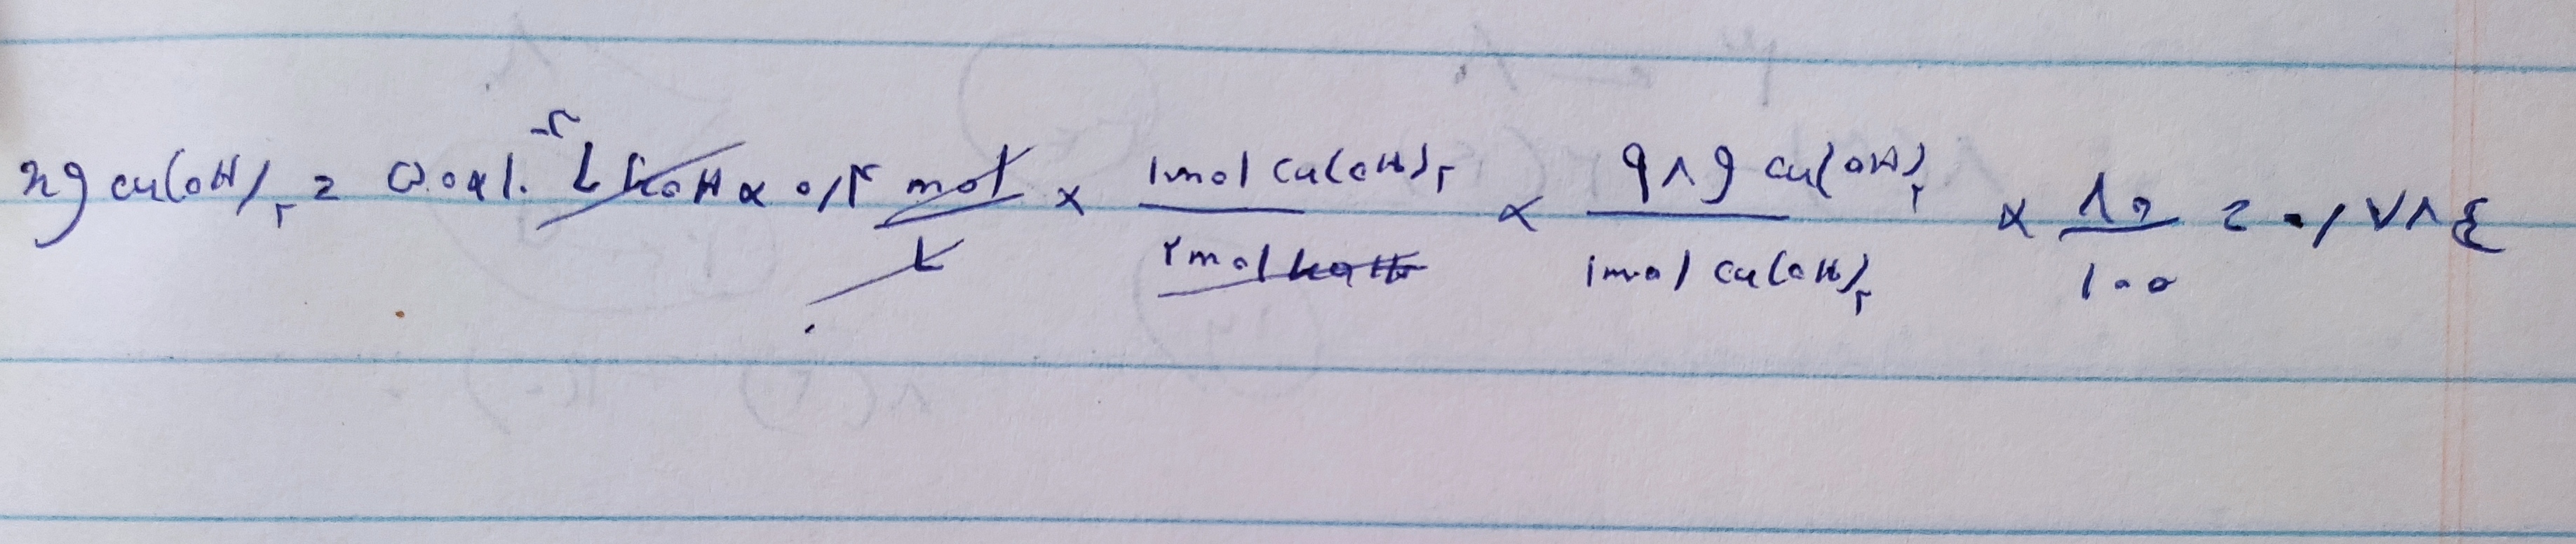 xg cu(OH)₂ = ۵۰×۱۰⁻۳ L KOH × ۰/۴ mol/L × ۱mol Cu(OH)۲ / ۲mol KOH × ۹۸g Cu(OH)۲ / ۱mol Cu(OH)۲ × ۸۰/۱۰۰ = ۰/۷۸۴